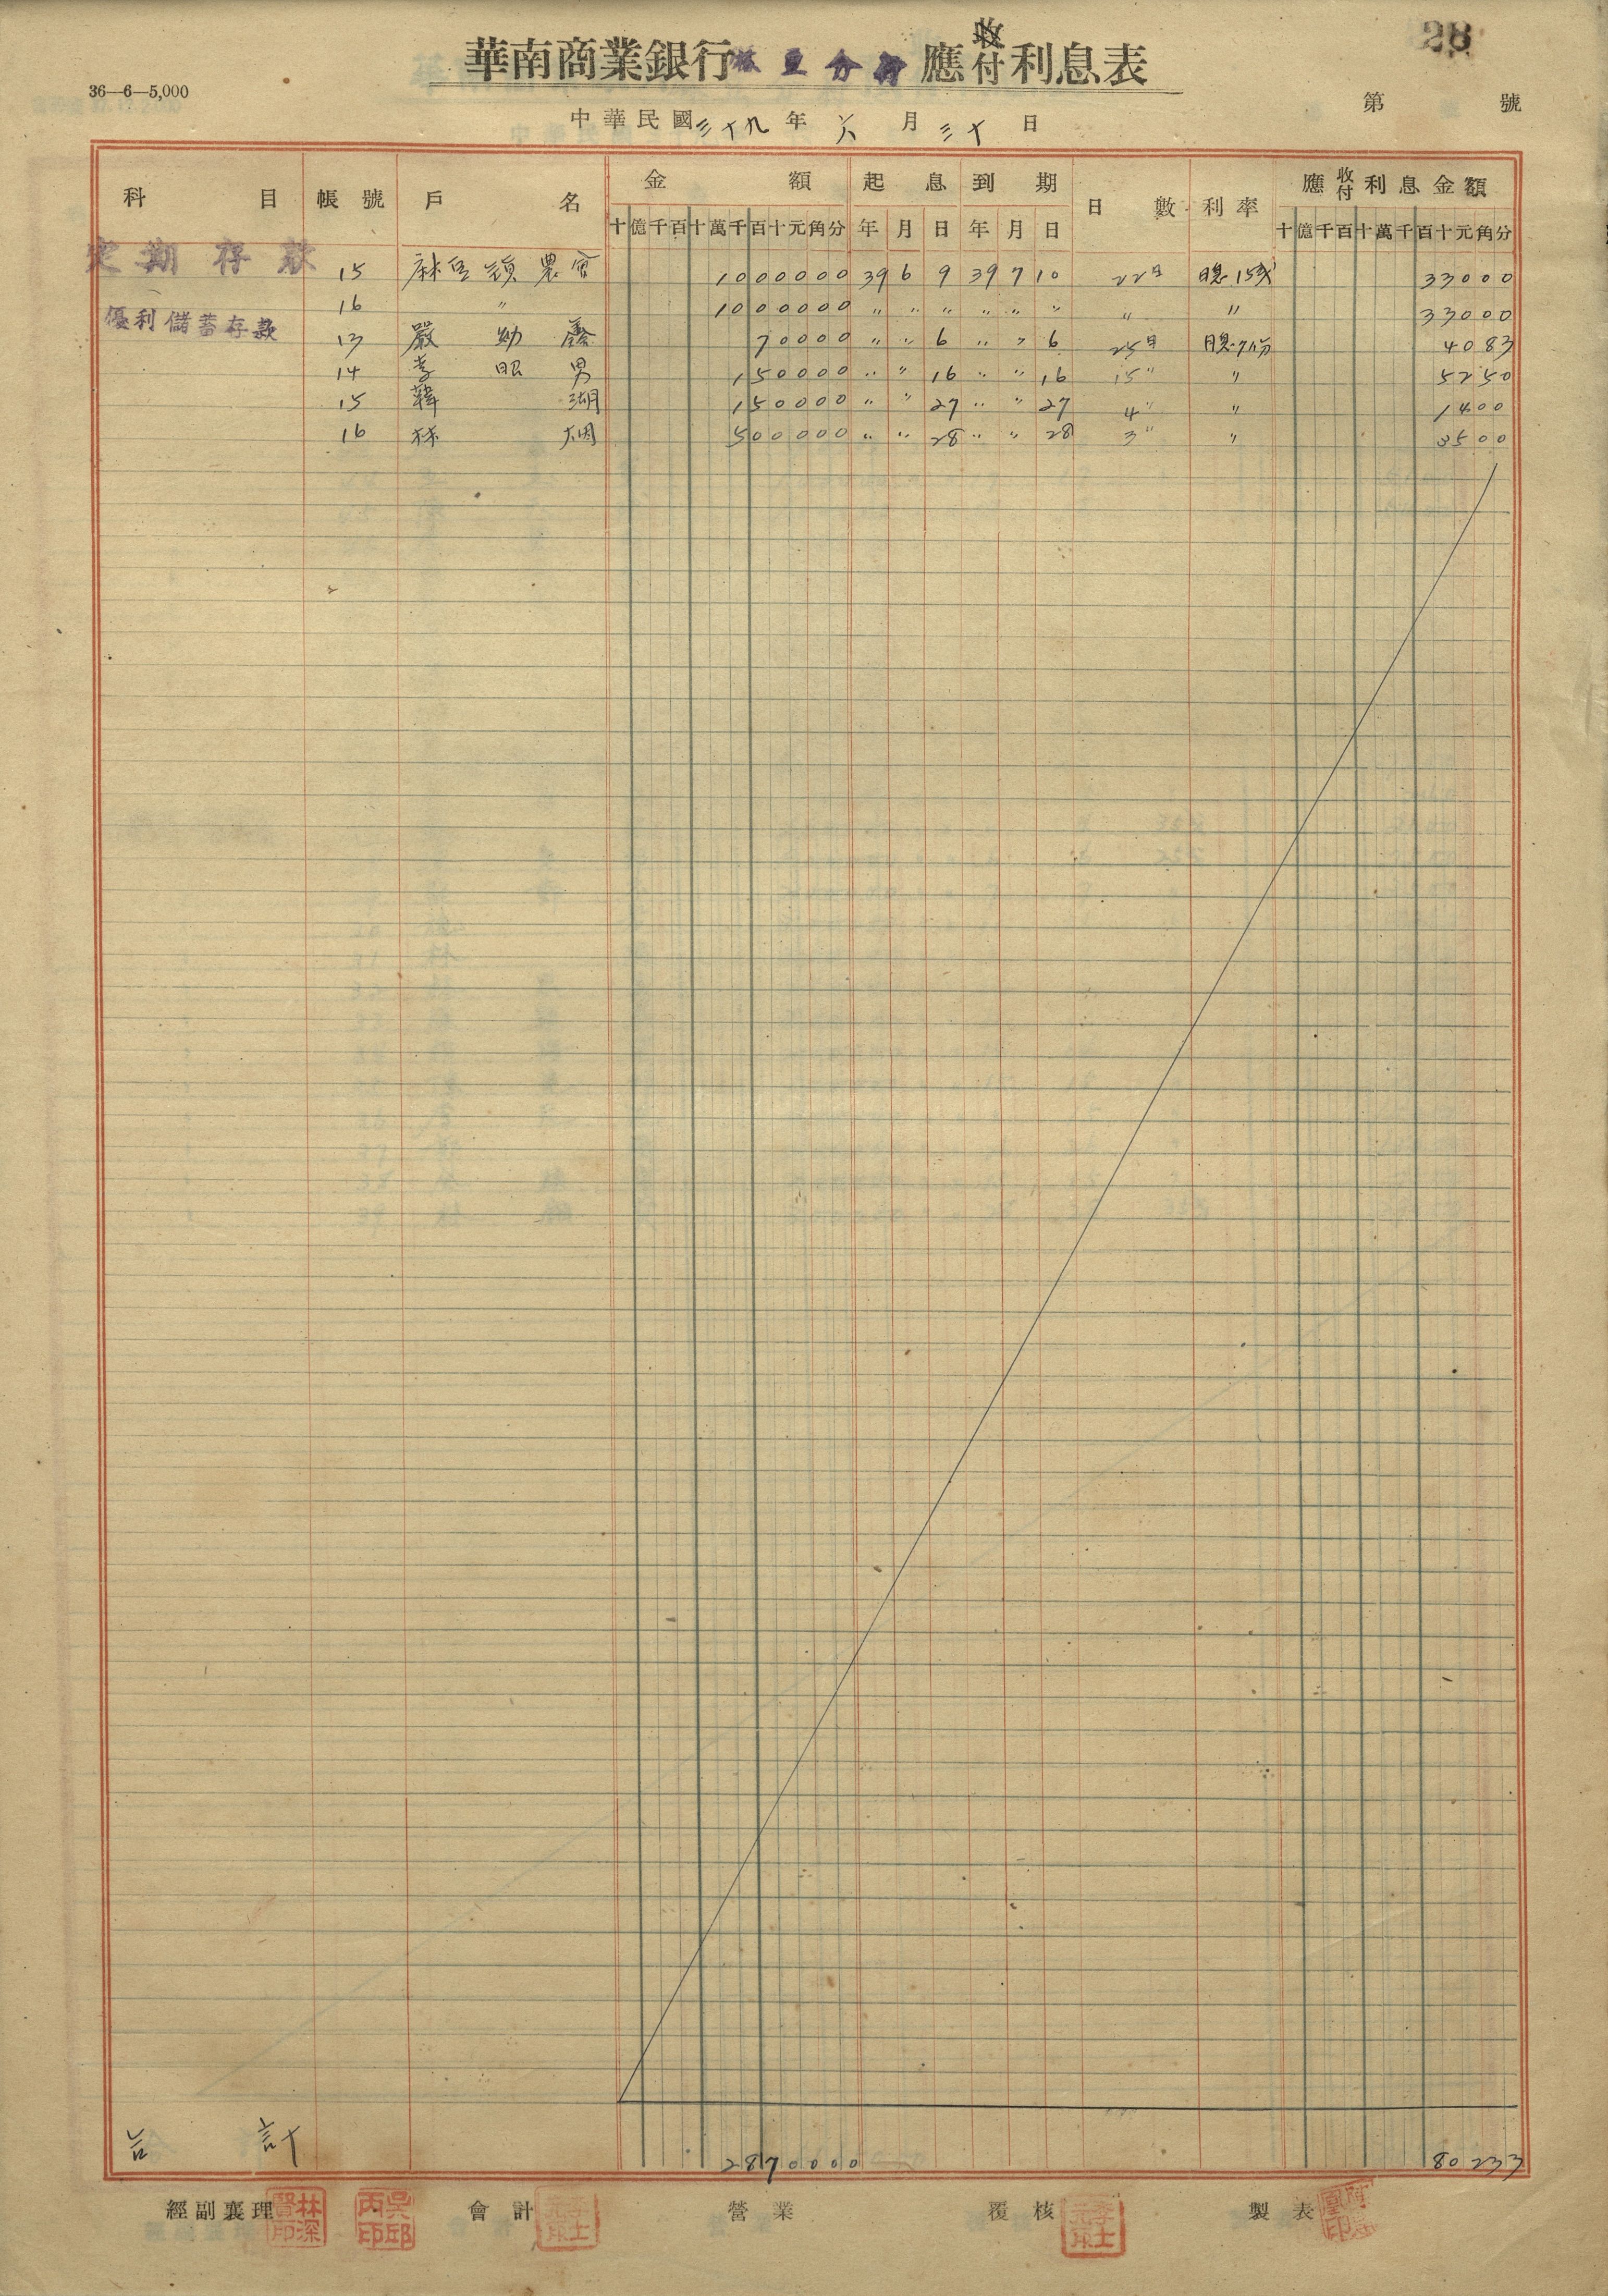 28
華南商業銀行 分行 應收付利息表
36—6—5,000
中華民國三十九年六月三十日
第 號
科目 帳號 戶名 金額 起息 到期 日數 利率 應收付利息金額
十億千百十萬千百十元角分 年月日 年月日 十億千百十萬千百十元角分
定期存款 15 麻豆 農會 1000000 39 6 9 39 7 10 22日 33000
16 〃 1000000 〃 〃 〃 〃 〃 〃 〃 〃 33000
優利儲蓄存款 13 嚴 70000 〃 〃 6 〃 〃 6 25日 4083
14 李 男 150000 〃 〃 16 〃 〃 16 15〃 〃 5250
15 韓 湖 150000 〃 〃 27 〃 〃 27 4〃 〃 1400
16 林 500000 〃 〃 28 〃 〃 28 3〃 〃 3500
合計 2870000 80233
經副襄理 會計 營業 覆核 製表